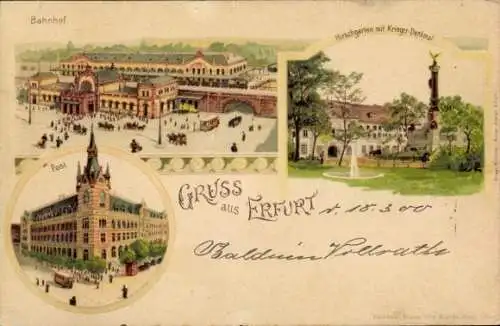 Bahnhof
Hirschgarten mit Krieger-Denkmal
Post
GRUSS
aus ERFURT
d. 18.3.00
Balduin Vollrath